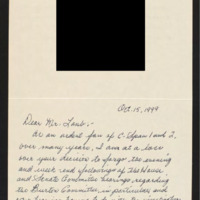 Oct. 15, 1999
Dear Mr. Lamb,-
As an ardent fan of C-Span 1 and 2,
over many years, I am at a loss
over your decision to forgo the evening
and week end followings of The House
and Senate Committee hearings regarding
the Burton Committee, in particular and